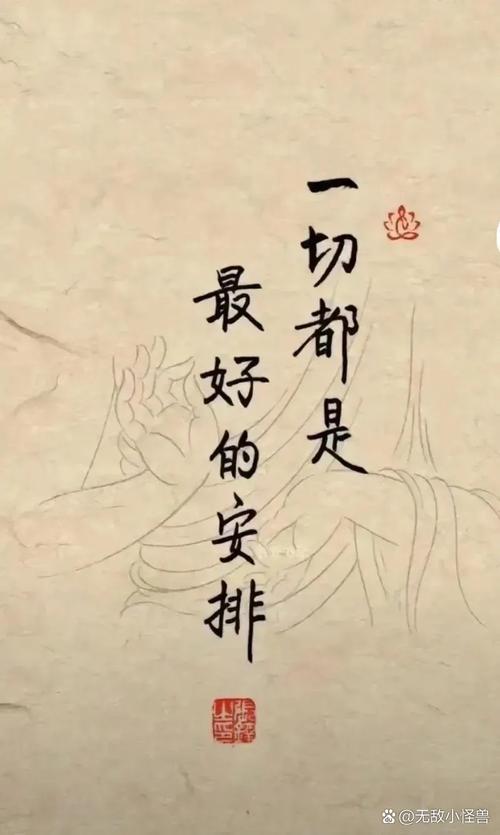 一切都是
最好的安排
@无敌小怪兽